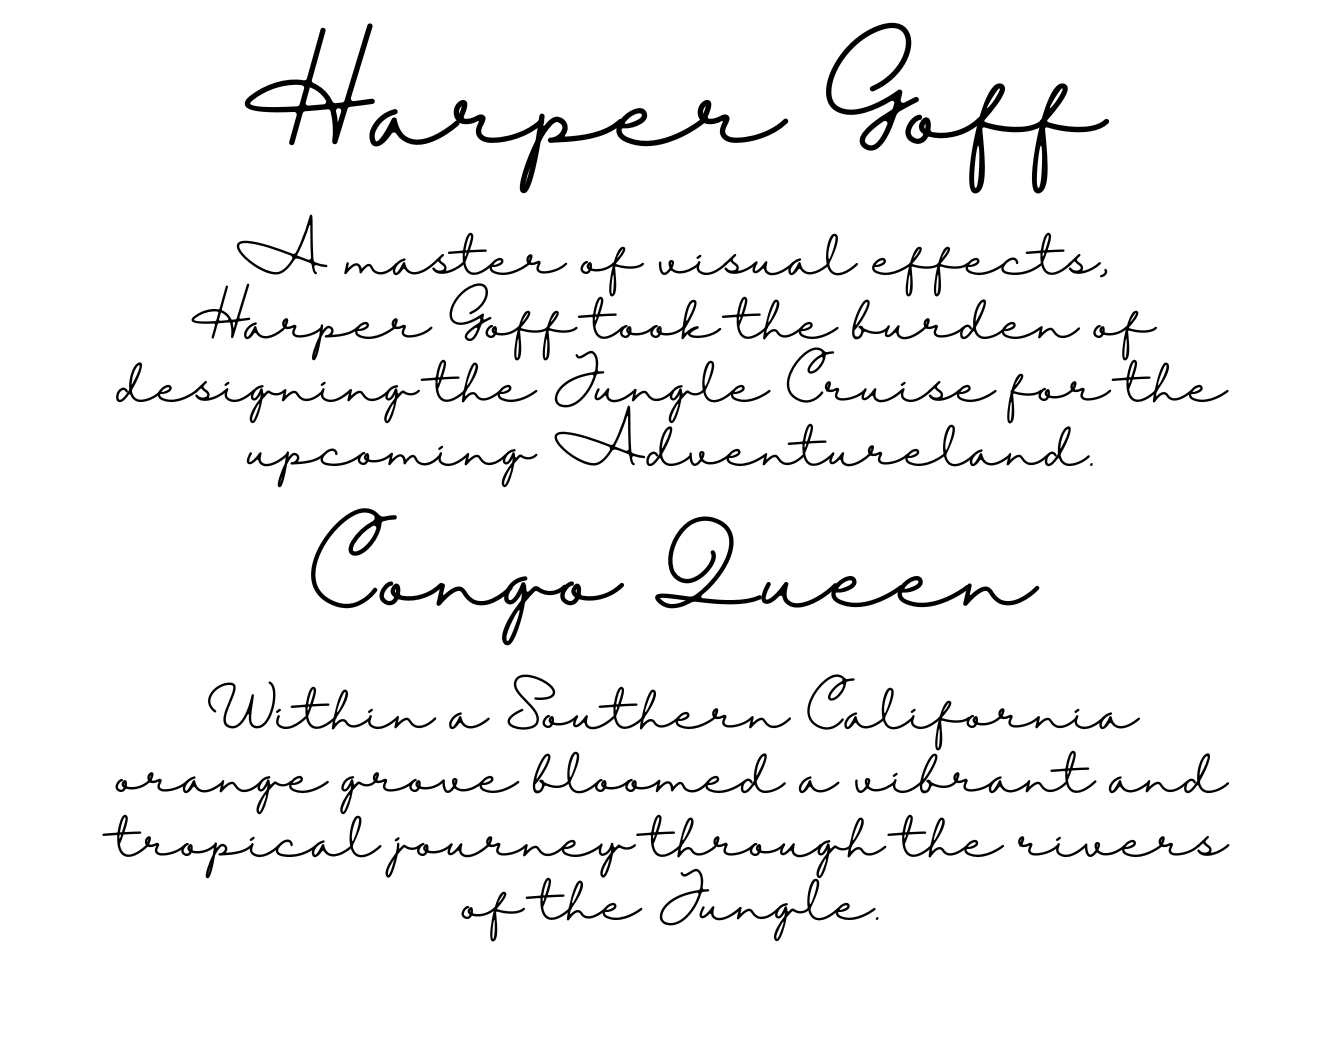 Harper Goff
A master of visual effects,
Harper Goff took the burden of
designing the Jungle Cruise for the
upcoming Adventureland.
Congo Queen
Within a Southern California
orange grove bloomed a vibrant and
tropical journey through the rivers
of the Jungle.